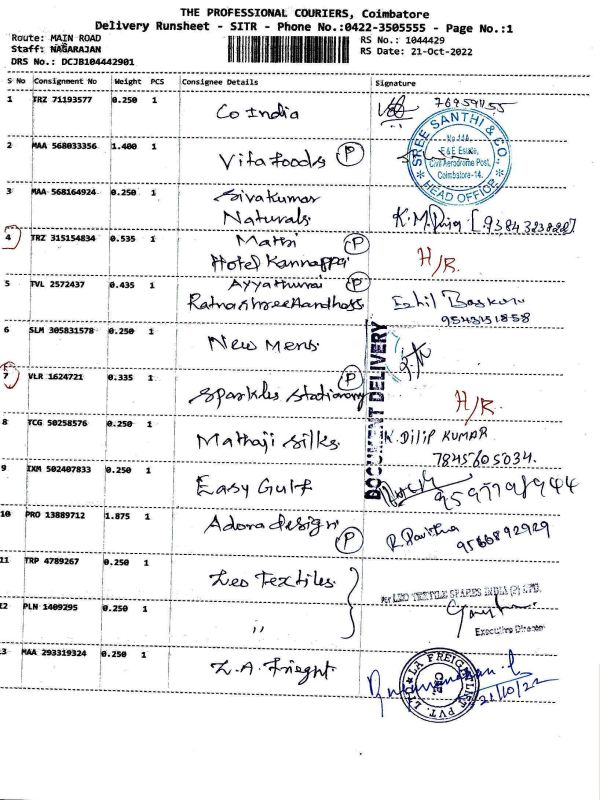 THE PROFESSIONAL COURIERS, Coimbatore
Delivery Runsheet - SITR - Phone No.:0422-3505555 - Page No.:1
Route: MAIN ROAD RS No.: 1044429
Staff: NAGARAJAN RS Date: 21-Oct-2022
DRS No.: DCJB104442901
S No Consignment No Weight PCS Consignee Details Signature
1 TRZ 71193577 0.250 1 Co India
SREE SANTHI & CO.,
No.11A,
E&E Estate,
Civil Aerodrome Post,
Coimbatore-14.
HEAD OFFICE
2 MAA 568033356 1.400 1 Vita foods P
3 MAA 568164924 0.250 1 Sivakumar
Naturals
4 TRZ 315154834 0.535 1 Mathi P H/R.
Hotel Kannappa
5 TVL 2572437 0.435 1 Ayyathurai P
Ezhil Baskar
9543151858
6 SLM 305831578 0.250 1 New Mens
DOCUMENT DELIVERY
7 VLR 1624721 0.335 1 Sparkles Stationary P H/R.
8 TCG 50258576 0.250 1 Mathaji Silks K. DILIP KUMAR
7845605034.
9 IXM 502407833 0.250 1 Easy Gulf
10 PRO 13889712 1.875 1 Adora design P R. Pavithra
9566892929
11 TRP 4789267 0.250 1 Leo Textiles
For LEO TEXTILE SPARES INDIA (P) LTD.
12 PLN 1409295 0.250 1 ,,
Executive Director
13 MAA 293319324 0.250 1 L.A. Frieght
21/10/22